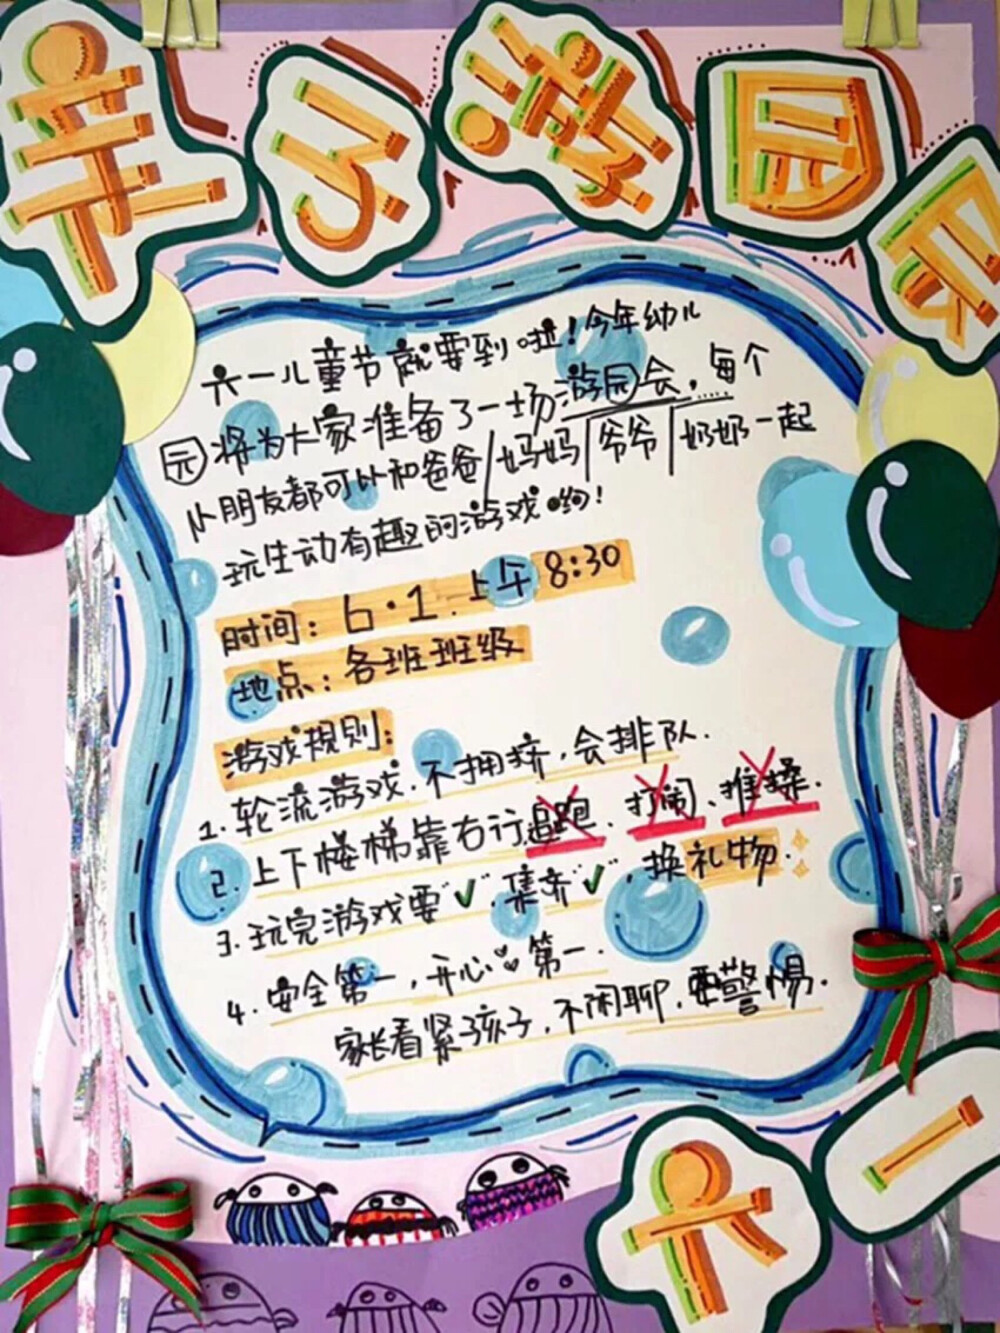 亲子游园
六一儿童节就要到啦!今年幼儿
园将为大家准备了一场游园会,每个
小朋友都可以和爸爸/妈妈/爷爷/奶奶一起
玩生动有趣的游戏哟!
时间:6·1.上午8:30
地点:各班班级
游戏规则:
1.轮流游戏.不拥挤,会排队.
2.上下楼梯靠右行追跑、打闹、推搡.
3.玩完游戏要"✓"集齐"✓",换礼物.
4.安全第一,开心♡第一.
家长看紧孩子,不闲聊,要警惕.
六一